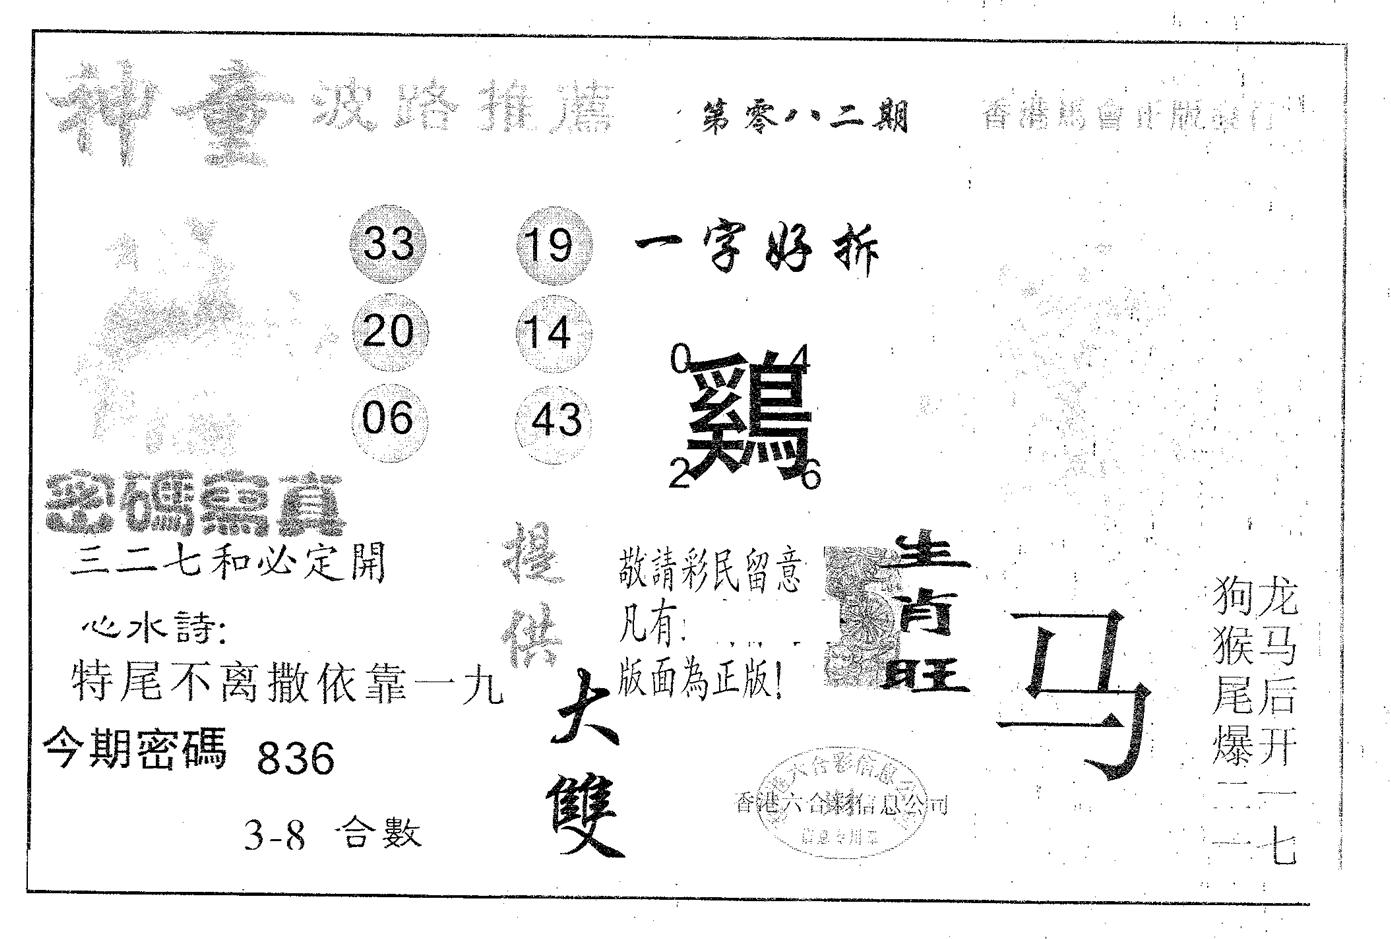 神童波路推薦 第零八二期 香港馬會正版發行
33 19
20 14
06 43
一字好拆
0 4
鷄
2 6
密碼寫真
三二七和必定開
心水詩:
特尾不离撒依靠一九
今期密碼 836
3-8 合數
提供
大雙
敬請彩民留意
凡有:
版面為正版!
生肖旺
马
龙马后开一七
狗猴尾爆二一
香港六合彩信息公司